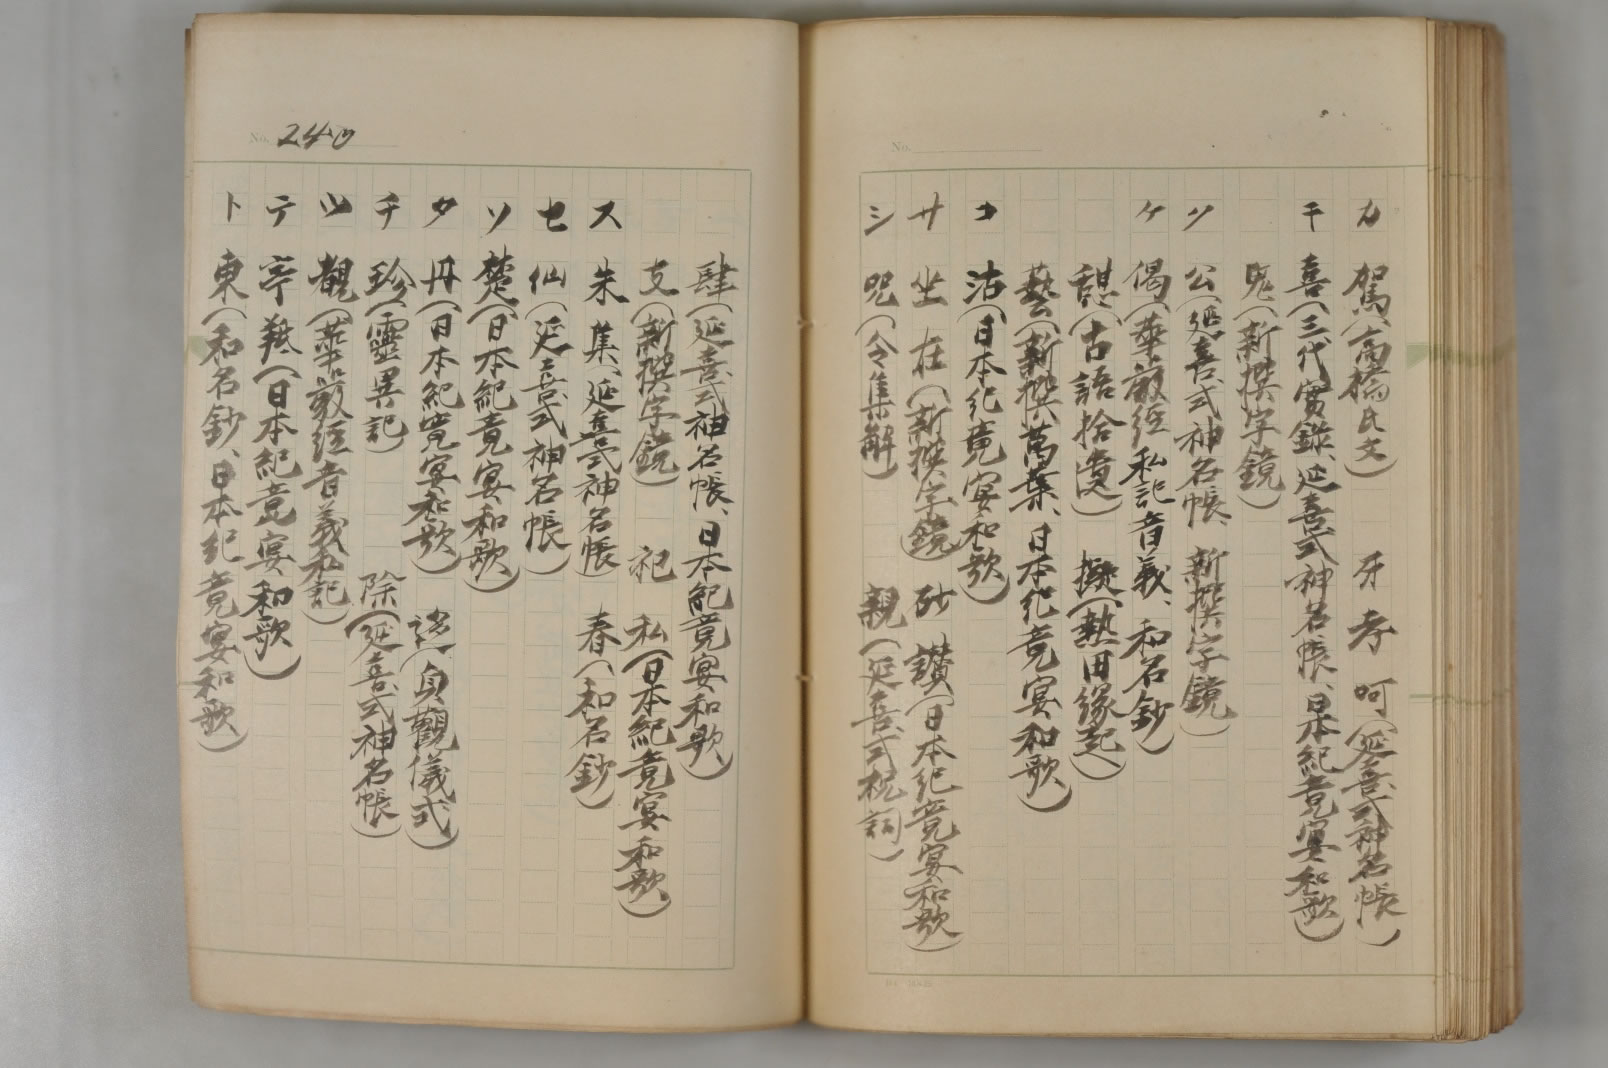 カ 賀(高橋氏文) 牙 孝 呵(延喜式神名帳)
キ 喜(三代實錄、延喜式神名帳、日本紀竟宴和歌)
鬼(新撰字鏡)
ク 公(延喜式神名帳、新撰字鏡)
ケ 偈(華嚴経私記音義、和名鈔)
憩(古語拾遺) 擬(熱田縁起)
藝(新撰萬葉、日本紀竟宴和歌)
コ 沽(日本紀竟宴和歌)
サ 坐 在(新撰字鏡) 砂 讃(日本紀竟宴和歌)
シ 呪(令集解) 親(延喜式祝詞)
No.
No. 240
肆(延喜式神名帳、日本紀竟宴和歌)
支(新撰字鏡) 祀 私(日本紀竟宴和歌)
ス 朱 集(延喜式神名帳) 春(和名鈔)
セ 仙(延喜式神名帳)
ソ 楚(日本紀竟宴和歌)
タ 丹(日本紀竟宴和歌) (貞觀儀式)
チ 珍(靈異記) 除(延喜式神名帳)
ツ 覩(華嚴経音義私記)
テ 帝 羝(日本紀竟宴和歌)
ト 東(和名鈔、日本紀竟宴和歌)